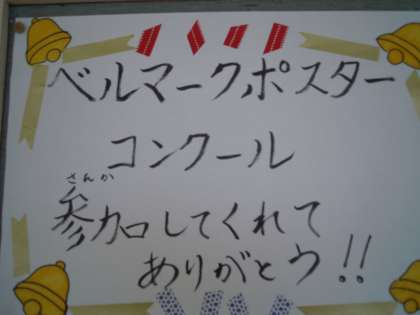 ベルマークポスター
コンクール
さんか
参加してくれて
ありがとウ!!